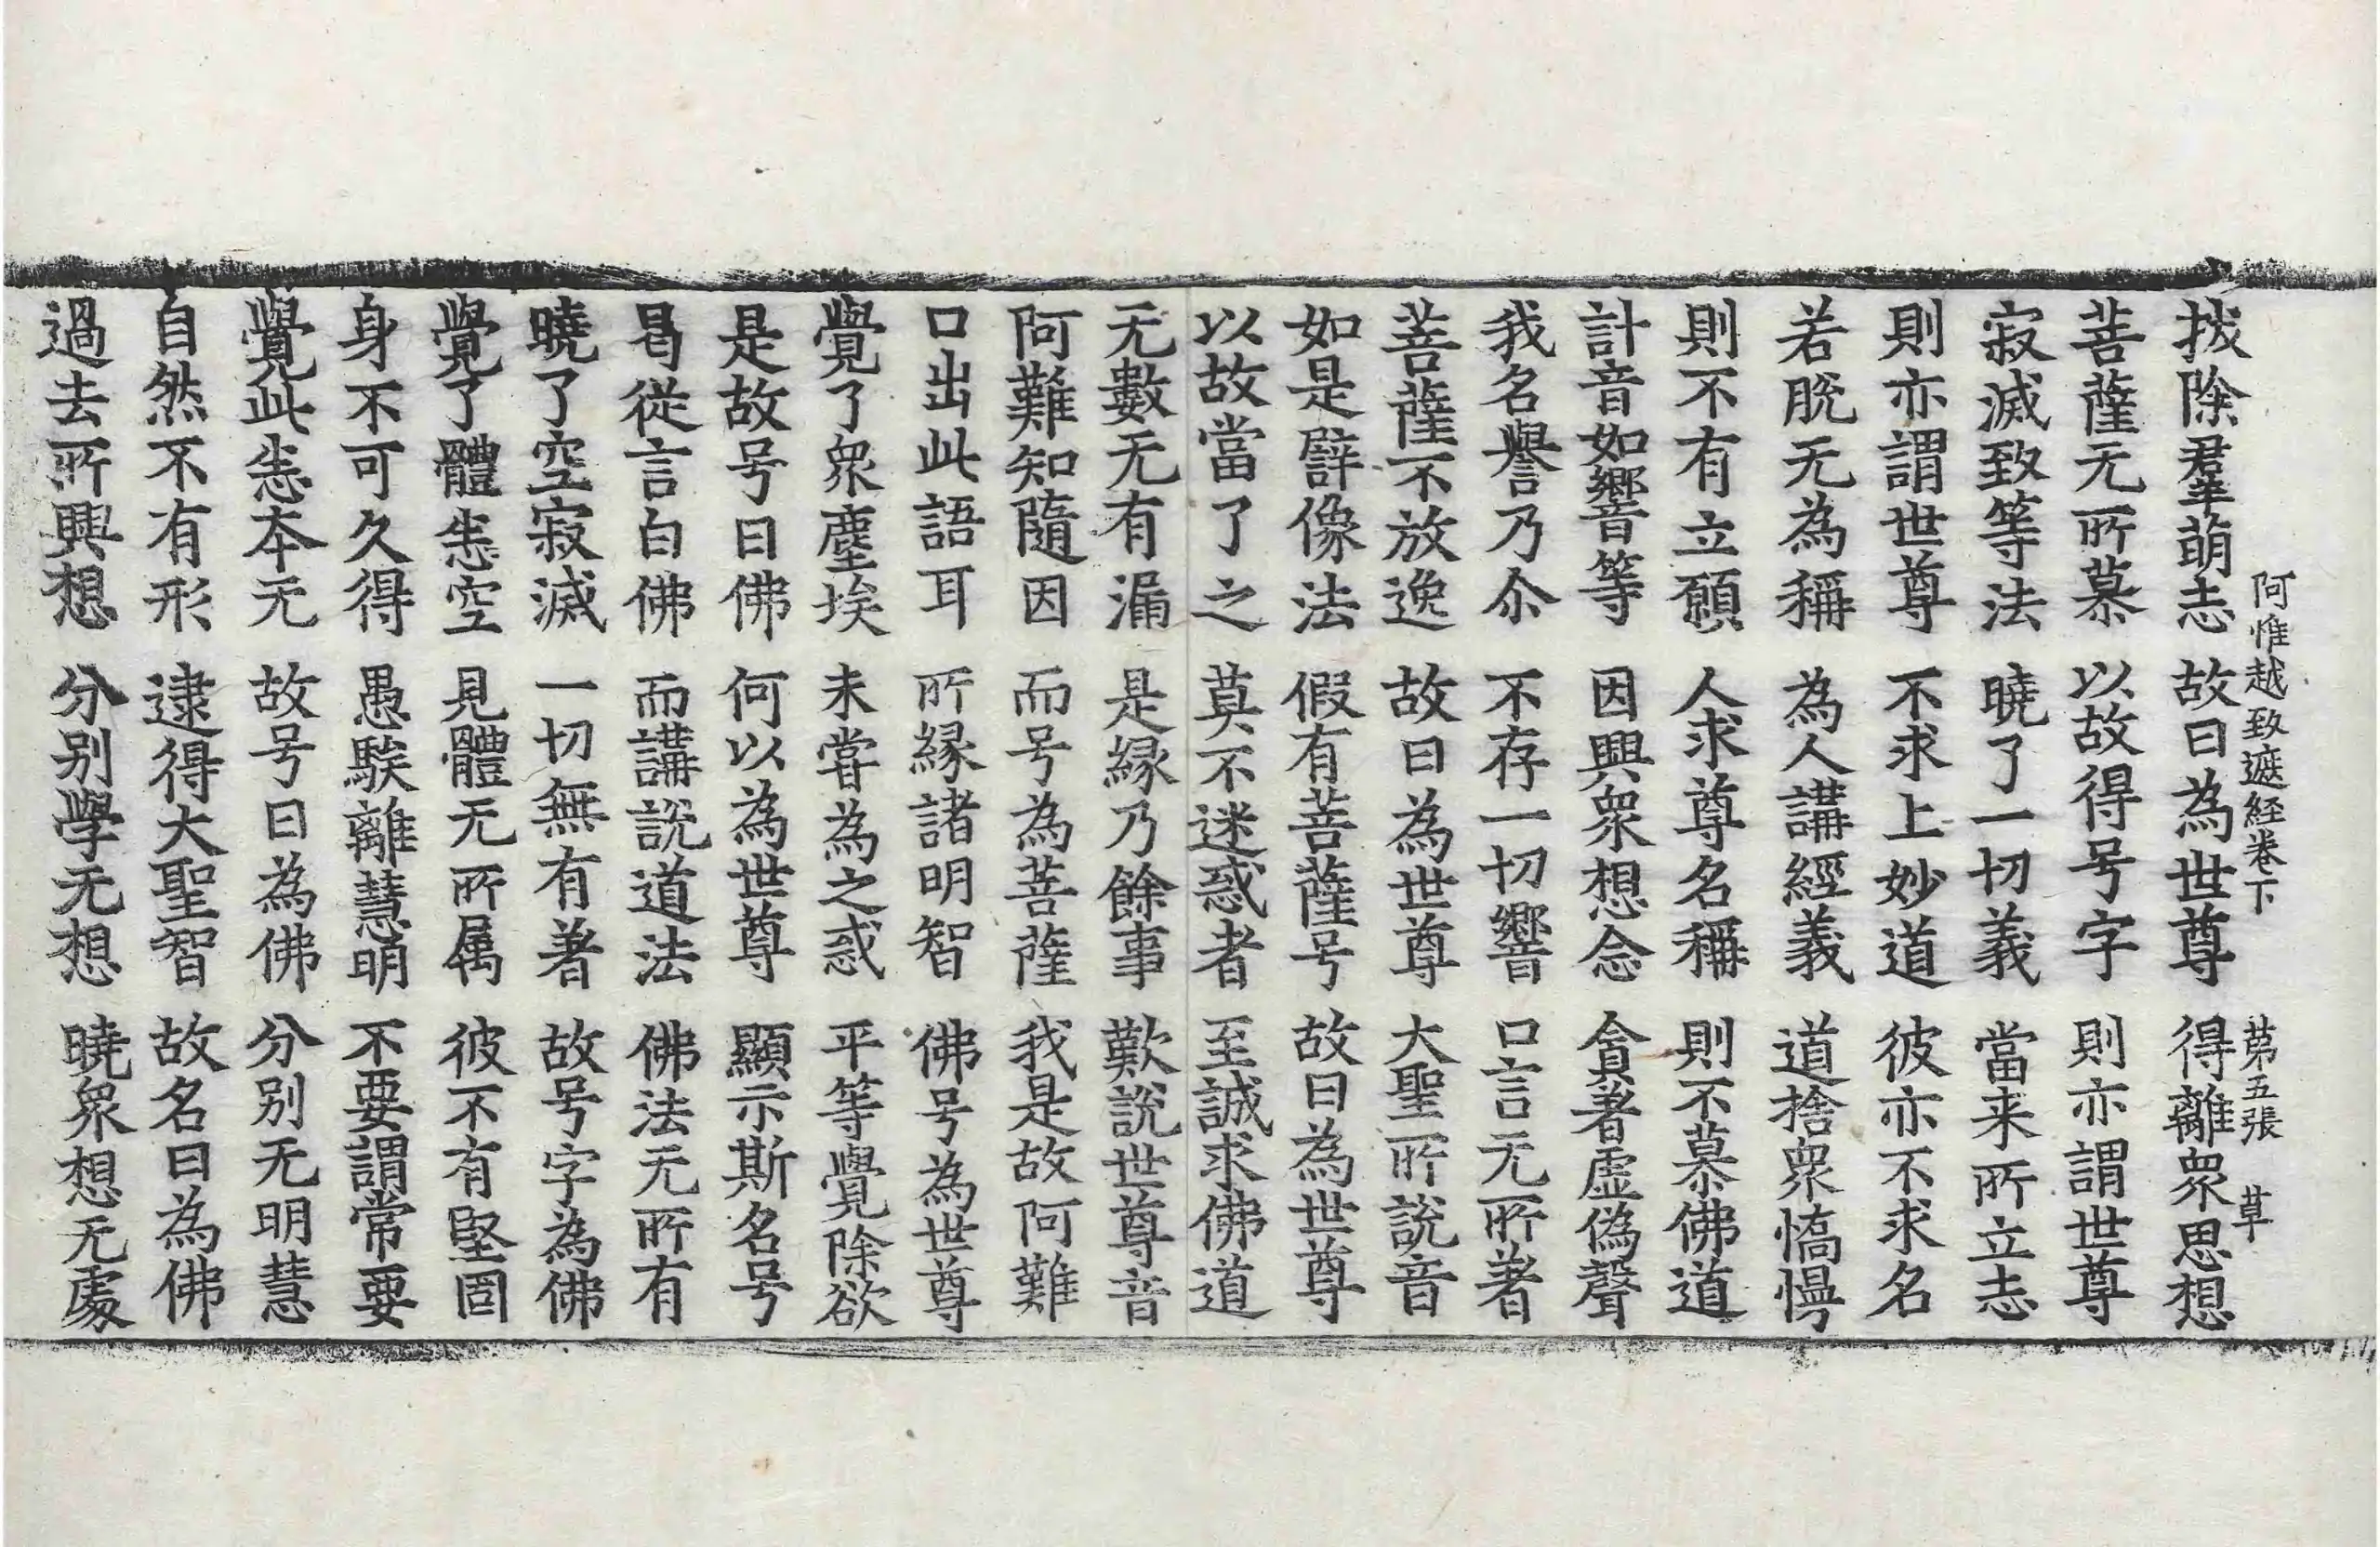 阿惟越致遮經卷下 第五張 草
拔除羣萌志 故曰為世尊 得離衆思想
菩薩无所慕 以故得号字 則亦謂世尊
寂滅致等法 曉了一切義 當来所立志
則亦謂世尊 不求上妙道 彼亦不求名
若脫无為稱 為人講經義 道捨衆憍慢
則不有立願 人求尊名稱 則不慕佛道
計音如響等 因興衆想念 貪著虛偽聲
我名譽乃尒 不存一切響 口言无所著
菩薩不放逸 故曰為世尊 大聖所說音
如是譬像法 假有菩薩号 故曰為世尊
以故當了之 莫不迷惑者 至誠求佛道
无數无有漏 是緣乃餘事 歎說世尊音
阿難知隨因 而号為菩薩 我是故阿難
口出此語耳 所緣諸明智 佛号為世尊
覺了衆塵埃 未甞為之惑 平等覺除欲
是故号曰佛 何以為世尊 顯示斯名号
曷從言白佛 而講說道法 佛法无所有
曉了空寂滅 一切無有著 故号字為佛
覺了體悉空 見體无所属 彼不有堅固
身不可久得 愚騃離慧明 不要謂常要
覺此悉本无 故号曰為佛 分别无明慧
自然不有形 逮得大聖智 故名曰為佛
過去所興想 分别學无想 曉衆想无處